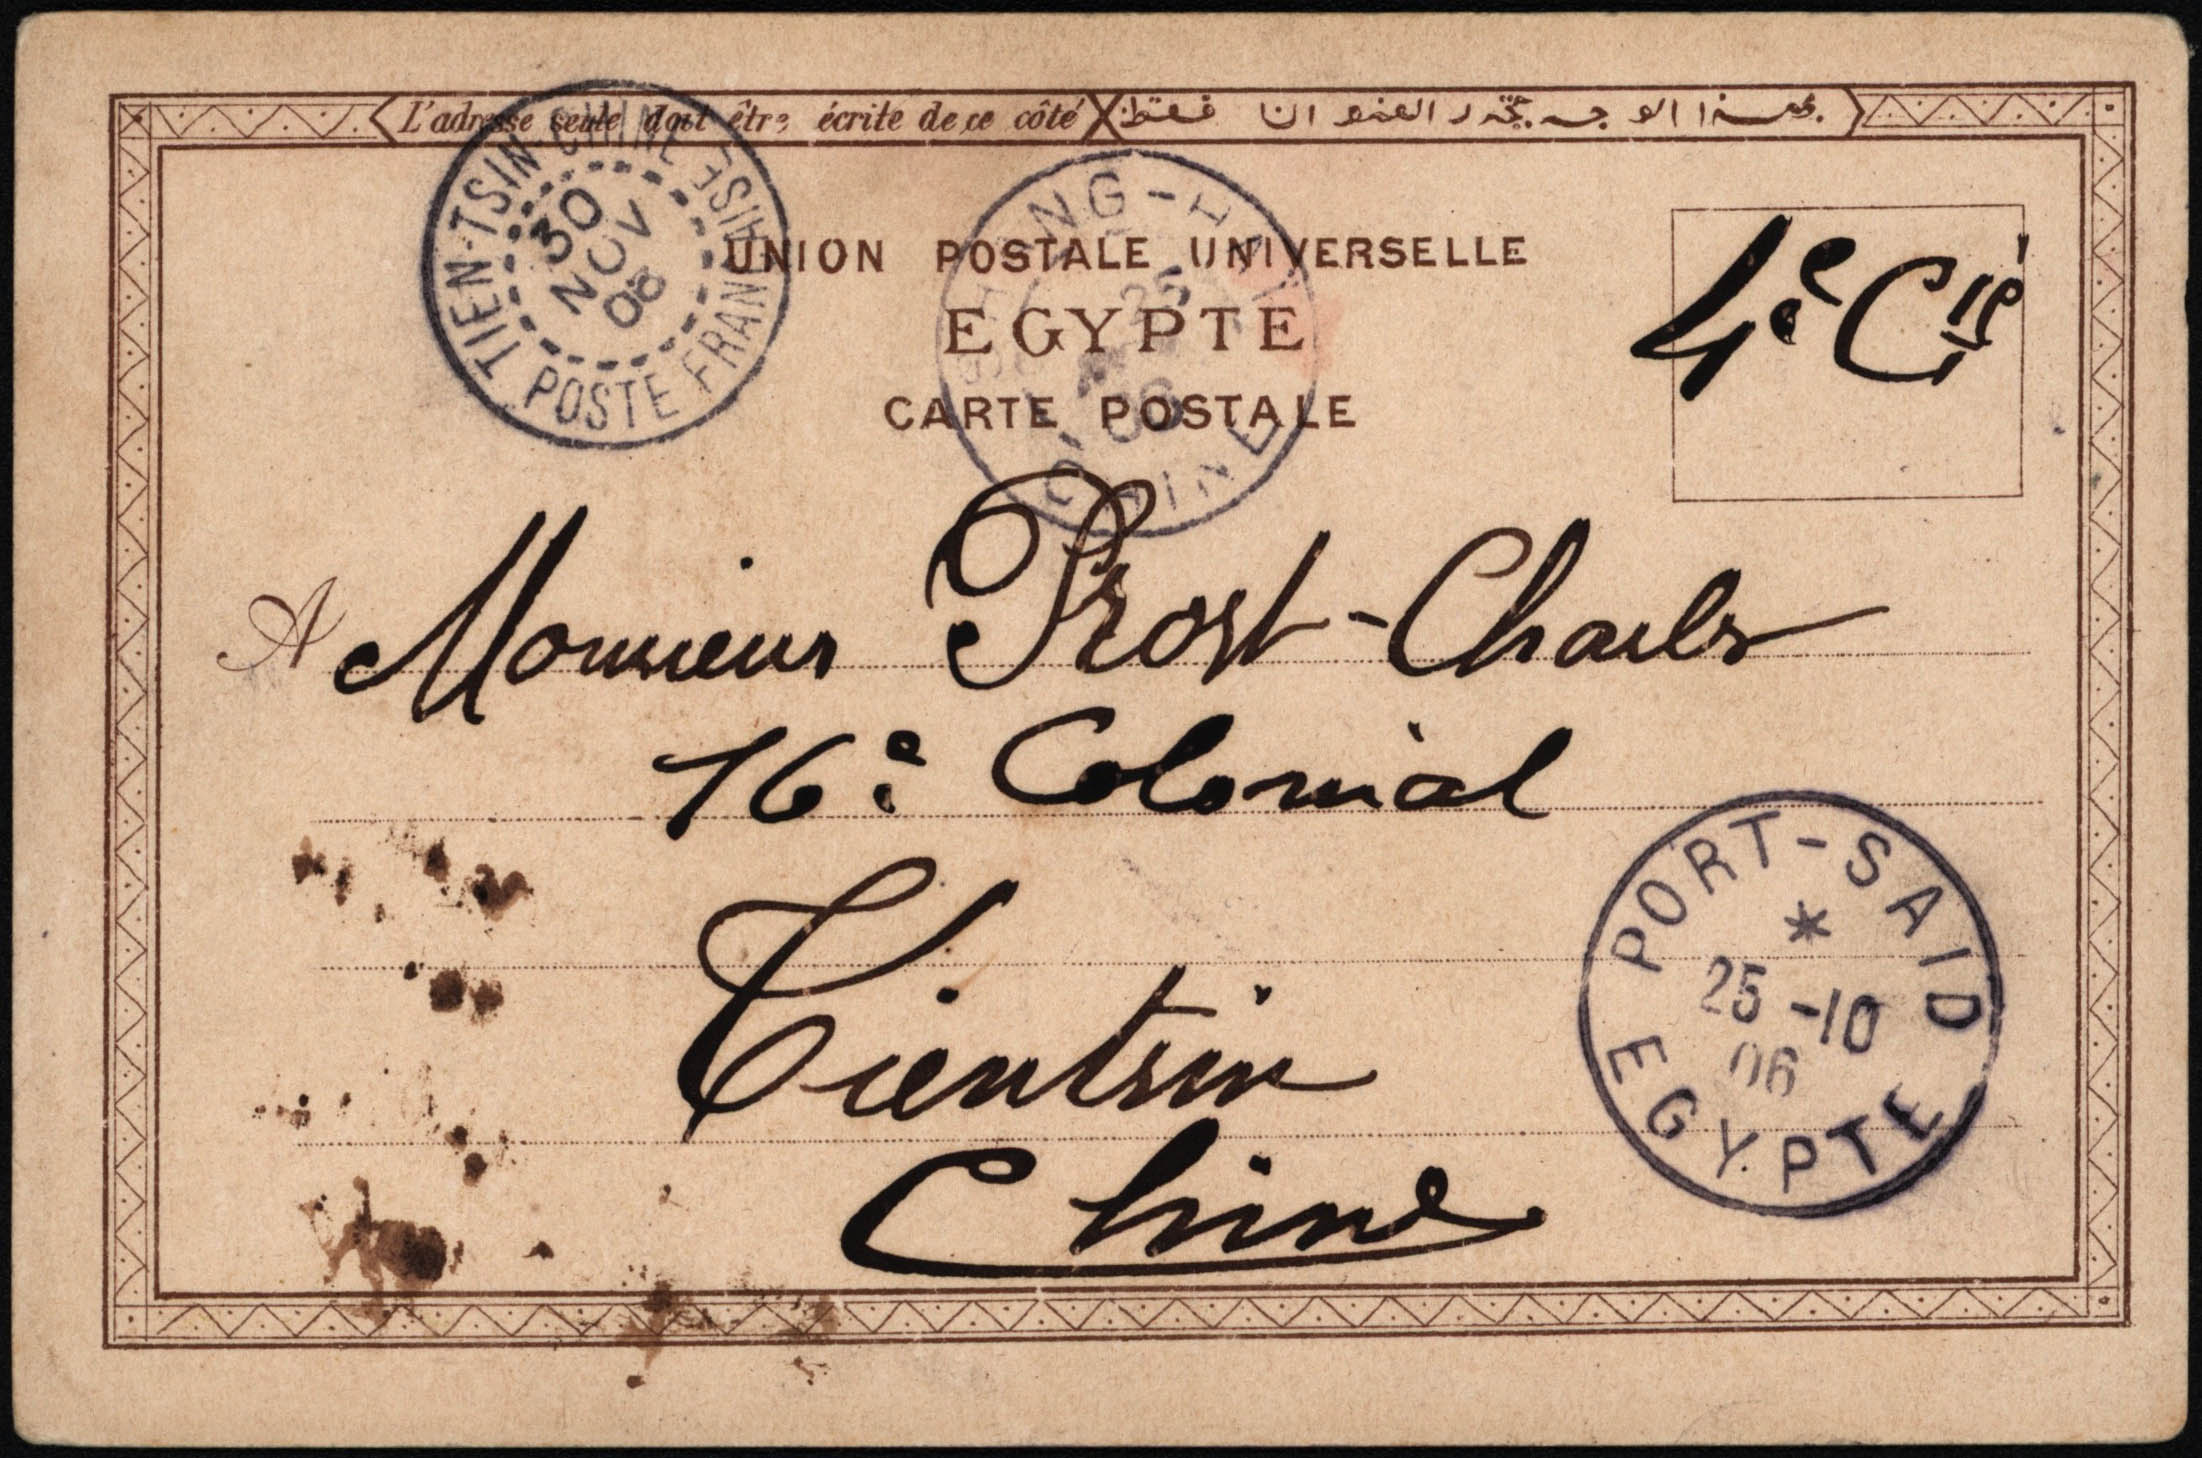 L'adresse seule doit être écrite de ce côté
هذا الوجه يحرر العنوان فقط
TIEN-TSIN-CHINE
POSTE FRANÇAISE
30
NOV
06
SHANG-HAI
25
06
CHINE
UNION POSTALE UNIVERSELLE
EGYPTE
CARTE POSTALE
4e Cie
A Monsieur Prost-Charles
16e Colonial
Tientsin
Chine
PORT-SAID
25-10
06
EGYPTE